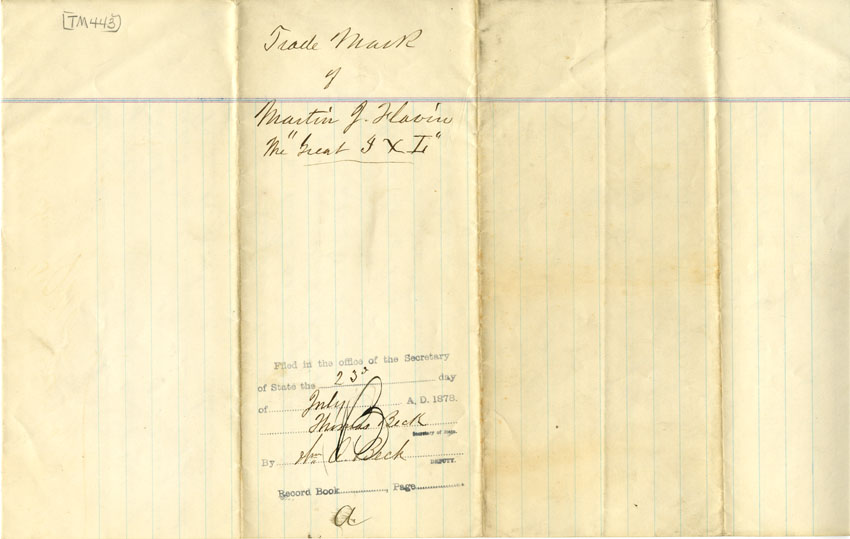 [TM443]
Trade Mark
of
Martin J. Flavin
The "Great I X L"
Filed in the office of the Secretary
of State the 23d day
of July A. D. 1878.
Thomas Beck
Secretary of State.
By Wm C. Beck
DEPUTY.
Record Book , Page
a